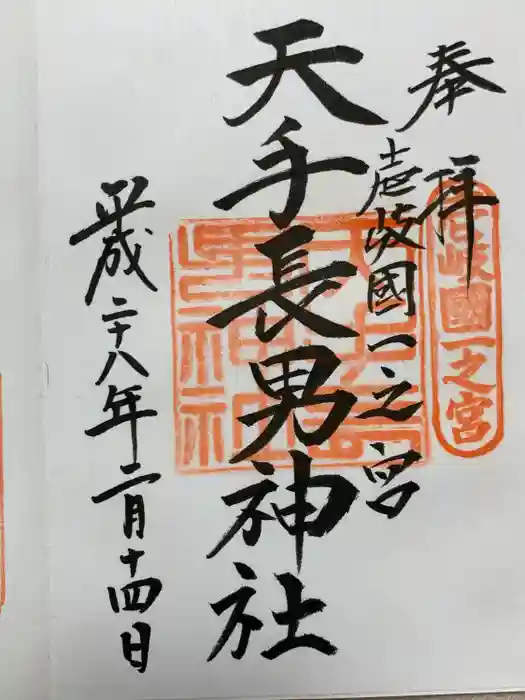 奉拝
壱岐國一之宮
壱岐國一之宮
天手長男神社
平成二十八年二月十四日